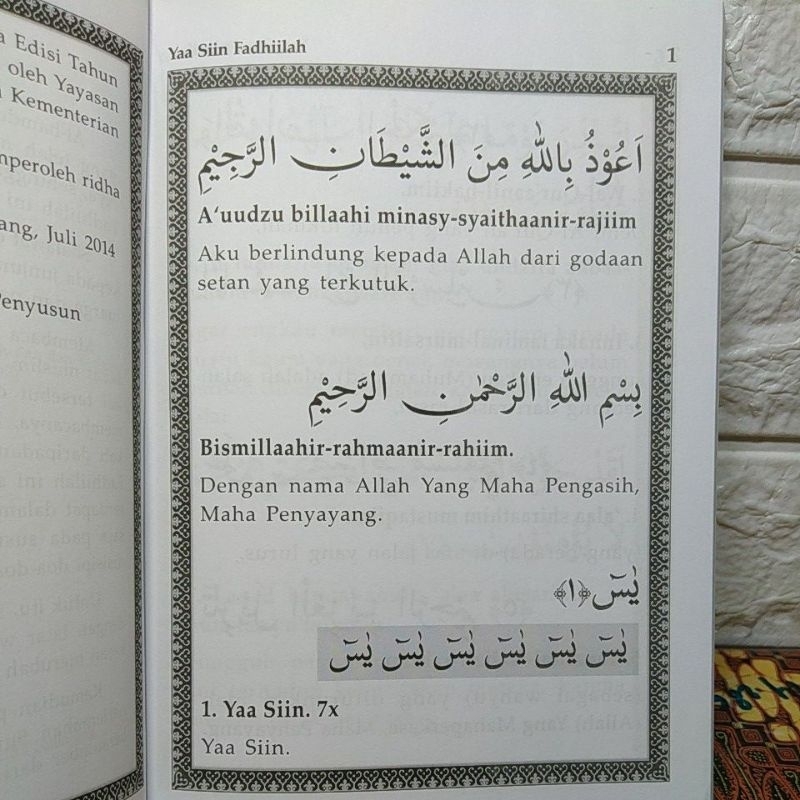 a Edisi Tahun
oleh Yayasan
Kementerian
mperoleh ridha
ang, Juli 2014
Penyusun
Yaa Siin Fadhiilah
1
اَعُوْذُ بِاللهِ مِنَ الشَّيْطَانِ الرَّجِيْمِ
A‘uudzu billaahi minasy-syaithaanir-rajiim
Aku berlindung kepada Allah dari godaan
setan yang terkutuk.
بِسْمِ اللهِ الرَّحْمٰنِ الرَّحِيْمِ
Bismillaahir-rahmaanir-rahiim.
Dengan nama Allah Yang Maha Pengasih,
Maha Penyayang.
يٰسۤ ﴿١﴾
يٰسۤ يٰسۤ يٰسۤ يٰسۤ يٰسۤ يٰسۤ
1. Yaa Siin. 7x
Yaa Siin.